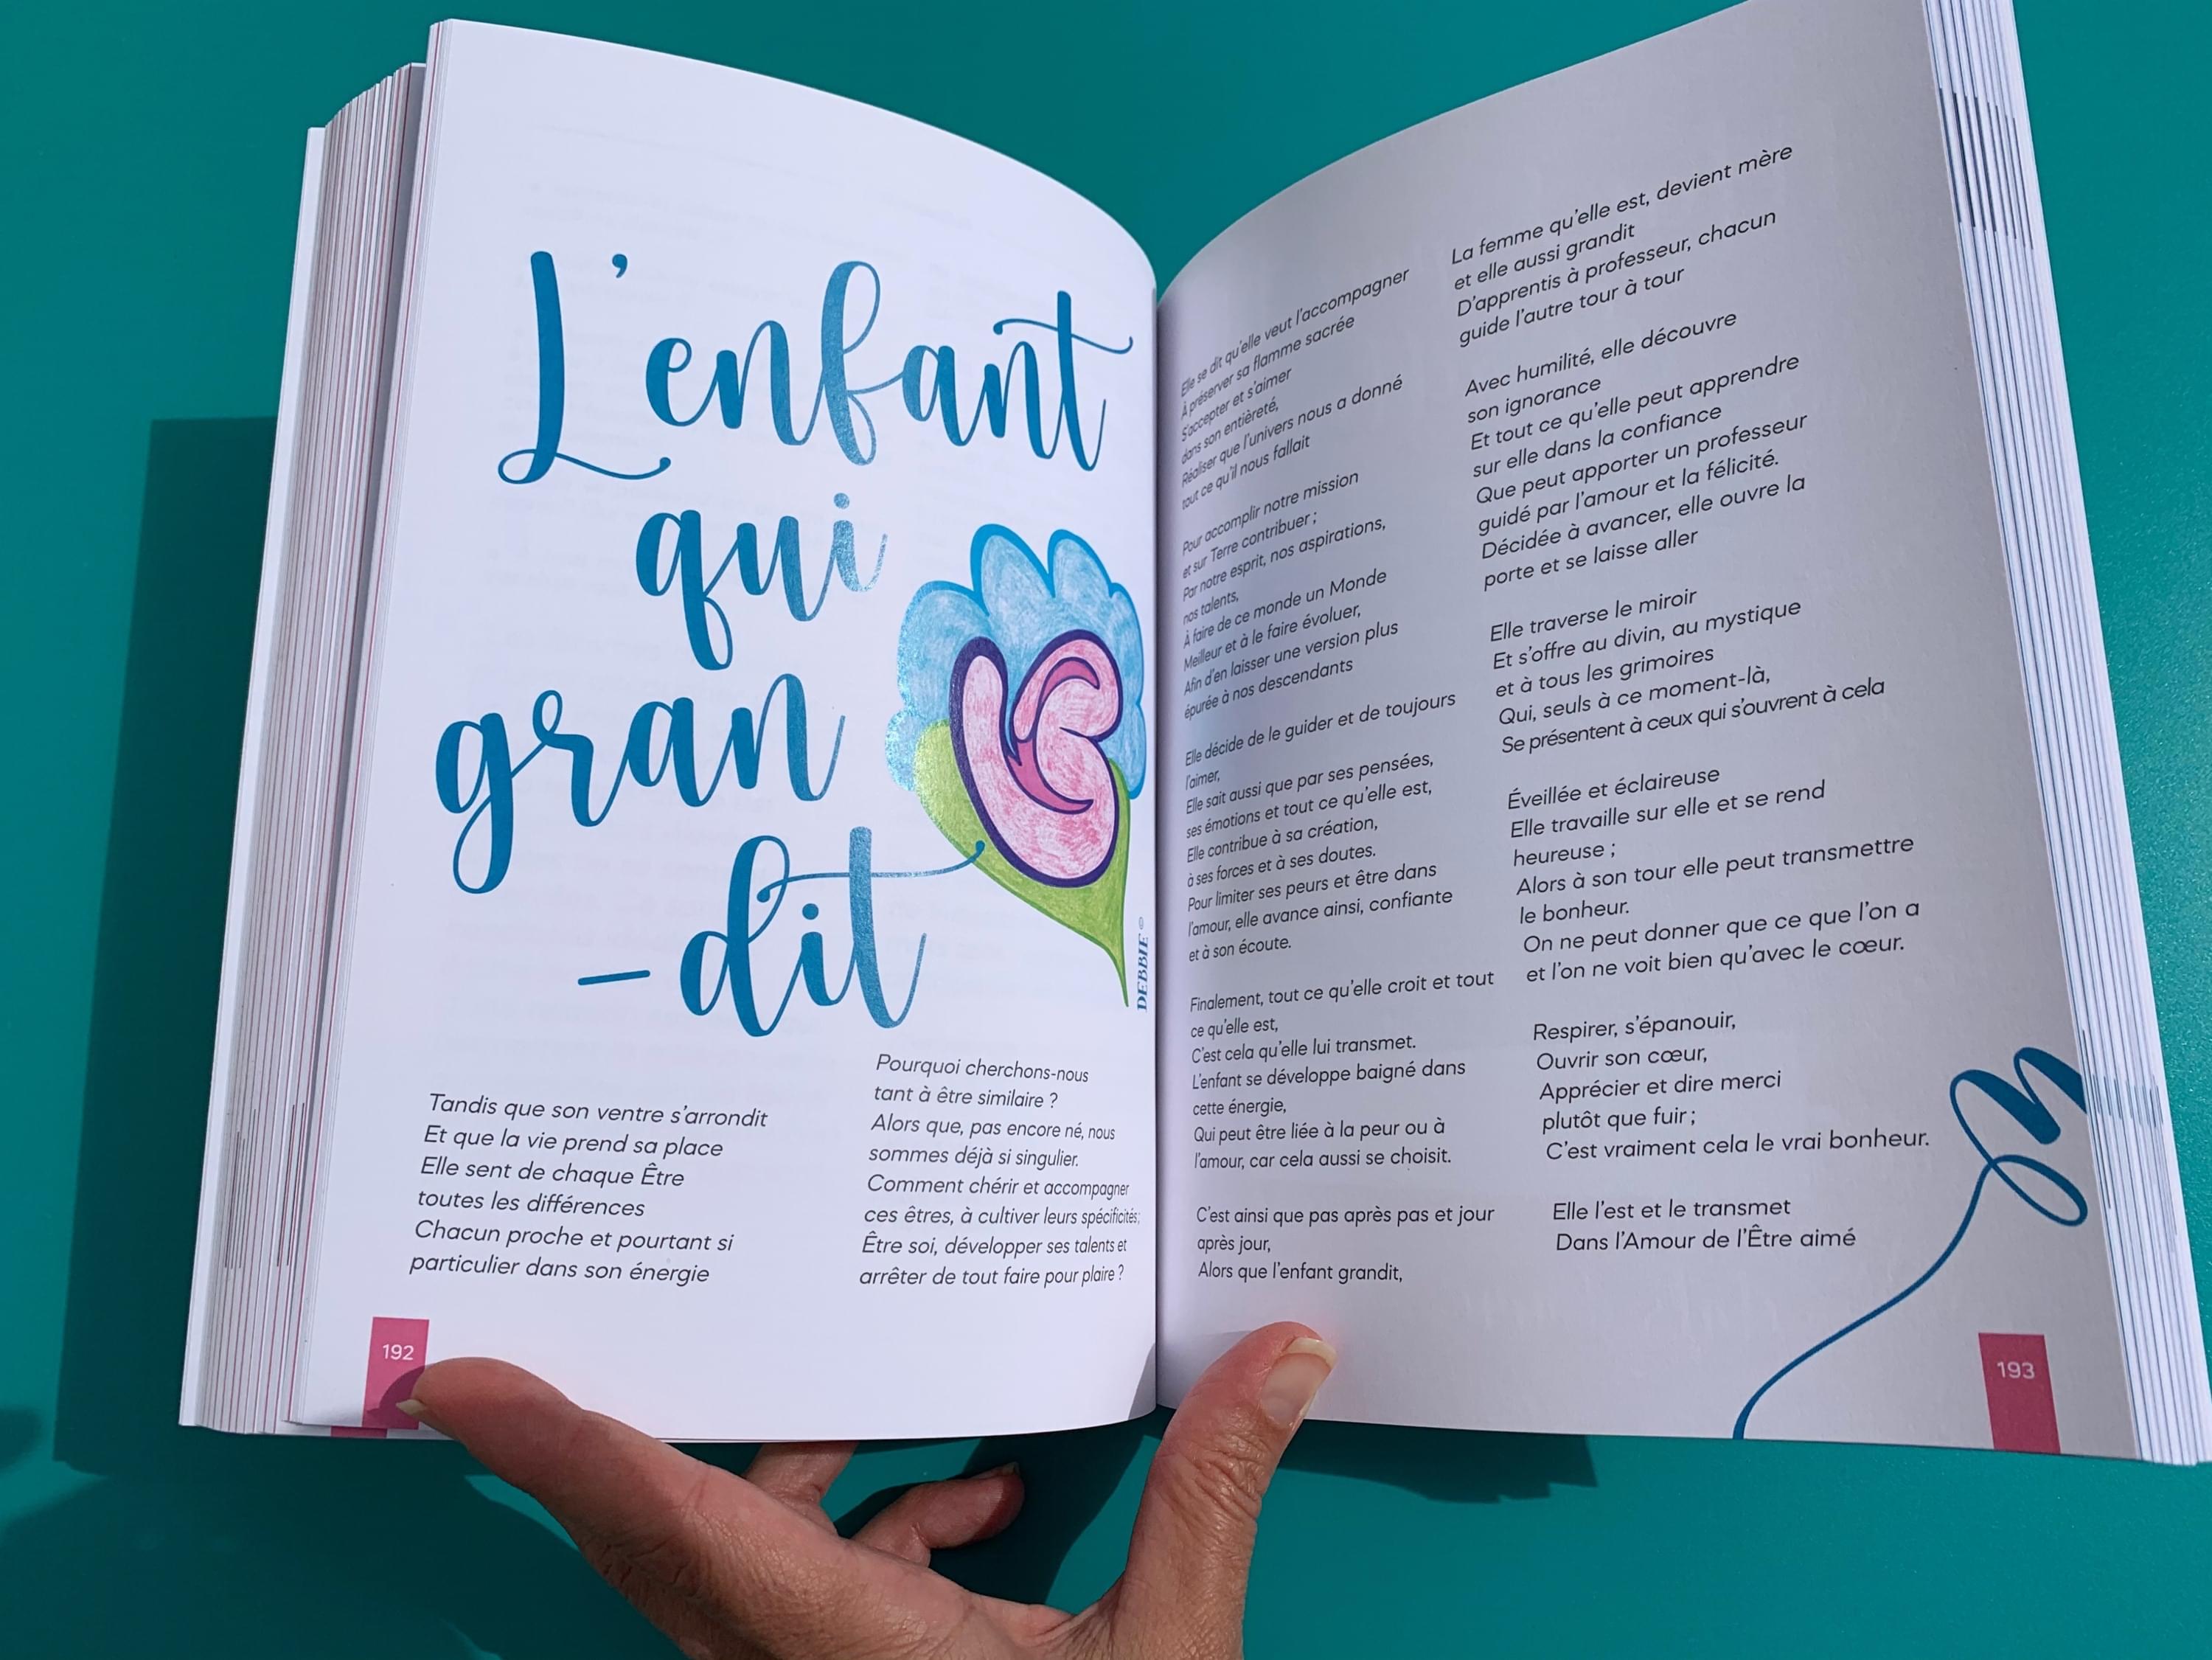 L'enfant
qui
gran
-dit
DEBBIE ©
Tandis que son ventre s'arrondit
Et que la vie prend sa place
Elle sent de chaque Être
toutes les différences
Chacun proche et pourtant si
particulier dans son énergie
Pourquoi cherchons-nous
tant à être similaire ?
Alors que, pas encore né, nous
sommes déjà si singulier.
Comment chérir et accompagner
ces êtres, à cultiver leurs spécificités;
Être soi, développer ses talents et
arrêter de tout faire pour plaire ?
192
Elle se dit qu'elle veut l'accompagner
À préserver sa flamme sacrée
S'accepter et s'aimer
dans son entièreté,
Réaliser que l'univers nous a donné
tout ce qu'il nous fallait
Pour accomplir notre mission
et sur Terre contribuer ;
Par notre esprit, nos aspirations,
nos talents,
À faire de ce monde un Monde
Meilleur et à le faire évoluer,
Afin d'en laisser une version plus
épurée à nos descendants
Elle décide de le guider et de toujours
l'aimer,
Elle sait aussi que par ses pensées,
ses émotions et tout ce qu'elle est,
Elle contribue à sa création,
à ses forces et à ses doutes.
Pour limiter ses peurs et être dans
l'amour, elle avance ainsi, confiante
et à son écoute.
Finalement, tout ce qu'elle croit et tout
ce qu'elle est,
C'est cela qu'elle lui transmet.
L'enfant se développe baigné dans
cette énergie,
Qui peut être liée à la peur ou à
l'amour, car cela aussi se choisit.
C'est ainsi que pas après pas et jour
après jour,
Alors que l'enfant grandit,
La femme qu'elle est, devient mère
et elle aussi grandit
D'apprentis à professeur, chacun
guide l'autre tour à tour
Avec humilité, elle découvre
son ignorance
Et tout ce qu'elle peut apprendre
sur elle dans la confiance
Que peut apporter un professeur
guidé par l'amour et la félicité.
Décidée à avancer, elle ouvre la
porte et se laisse aller
Elle traverse le miroir
Et s'offre au divin, au mystique
et à tous les grimoires
Qui, seuls à ce moment-là,
Se présentent à ceux qui s'ouvrent à cela
Éveillée et éclaireuse
Elle travaille sur elle et se rend
heureuse ;
Alors à son tour elle peut transmettre
le bonheur.
On ne peut donner que ce que l'on a
et l'on ne voit bien qu'avec le cœur.
Respirer, s'épanouir,
Ouvrir son cœur,
Apprécier et dire merci
plutôt que fuir ;
C'est vraiment cela le vrai bonheur.
Elle l'est et le transmet
Dans l'Amour de l'Être aimé
193